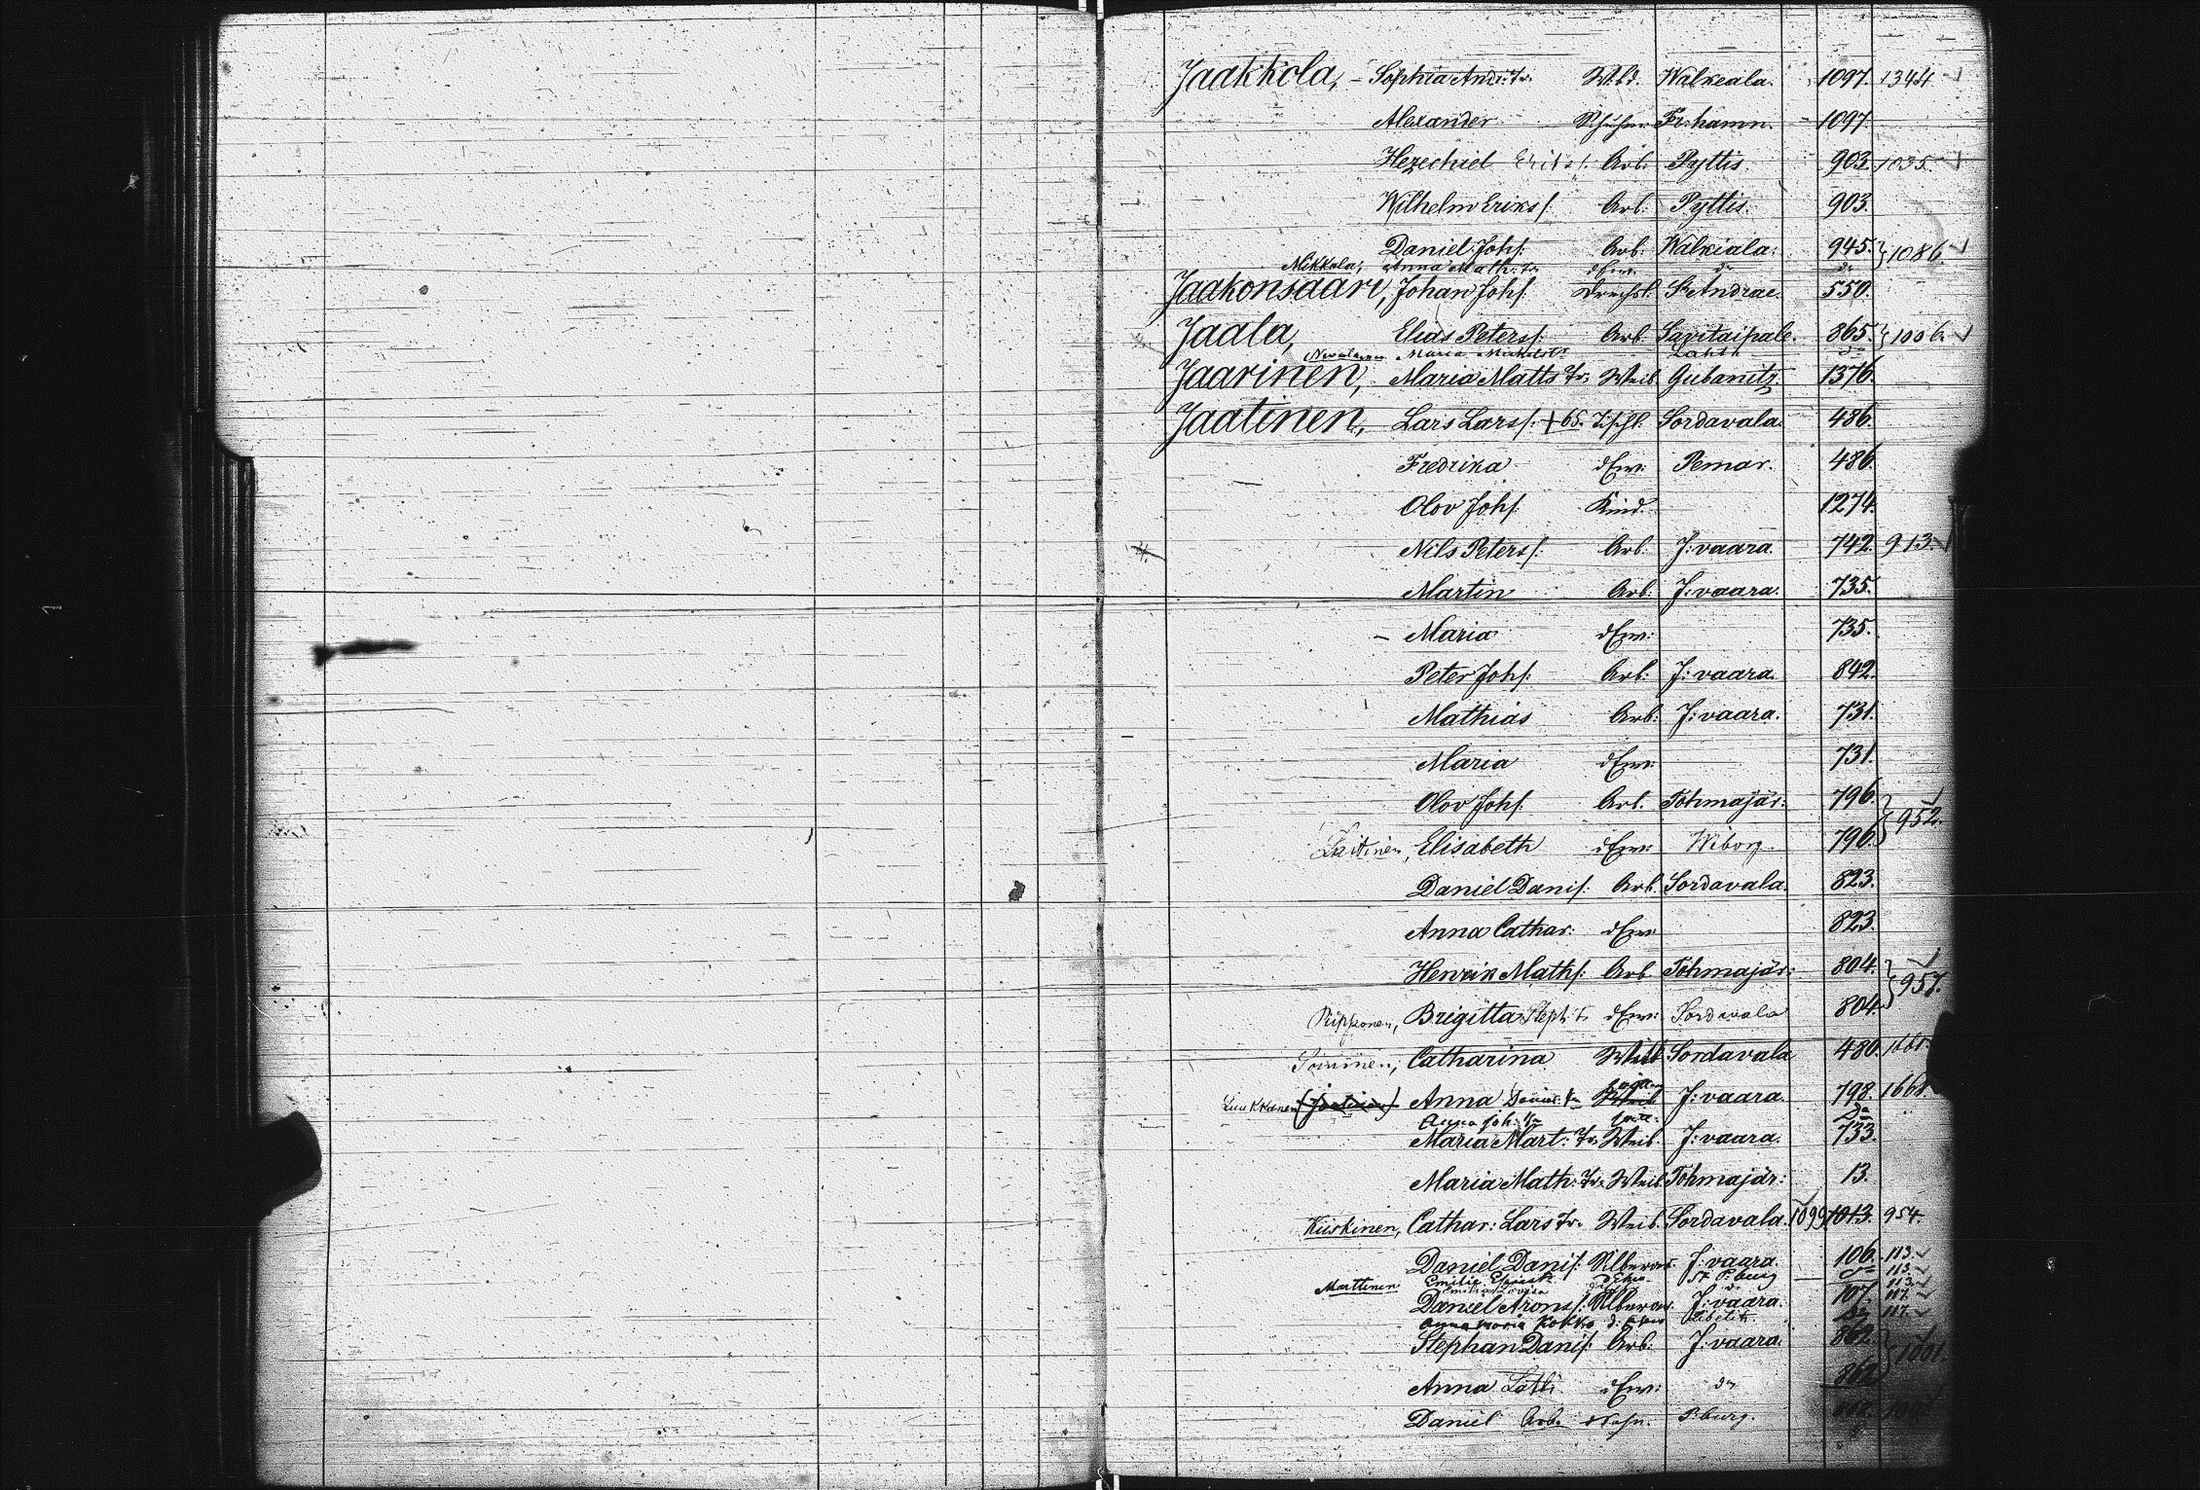 Jaakkola, – Sophia And: Tr. Wbd. Walkeala. 1097. 1344
Alexander Fr:hamn. 1097.
Hezechiel Eriks. Arb. Pyttis. 903. 1035.
Wilhelm Eriks. Arb. Pyttis. 903.
Daniel Johs. Arb. Walkiala. 945. } 1086.
Nikkola, Anna Math: Tr. d Frau do do
Jaakonsaari, Johan Johs. Drechsl. St Andrae. 550.
Jaala, Elias Peters. Arb. Savitaipale. 865. } 1006.
Maria Michelst. Lahti do
Jaarinen, Maria Matts Tr. Weib. Gubanitz. 1376.
Jaatinen, Lars Lars. +65. Tischl. Sordavala. 486.
Fredrika d Frau Pemar. 486.
Olov Johs. Kind. 1274.
Nils Peters. Arb. J:vaara. 742. 913.
Martin Arb. J:vaara. 735.
– Maria d Frau 735.
Peter Johs. Arb. J:vaara. 842.
Mathias Arb. J:vaara. 731.
Maria d Frau 731.
Olov Johs. Arb. Tohmajär: 796. } 952.
Laitinen, Elisabeth d Frau Wiborg. 796.
Daniel Danis. Arb. Sordavala. 823.
Anna Cathar: d Frau 823.
Henrik Maths. Arb Tohmajär: 804. } 957.
Piipponen, Brigitta Steph. t. d Frau Sordavala 804.
Catharina Weib Sordavala 480. 1661.
Luukkanen (Jaatinen) Anna Weib J:vaara. 798. 1661.
Anna Joh: Tr Do
Maria Mart: Tr. Weib. J:vaara. 733.
Maria Math: Tr. Weib. Tohmajär: 13.
Kiiskinen, Cathar: Lars Tr. Weib. Sordavala. 1099 1013. 954.
Daniel Danis. J:vaara. 106. 113.
Marttinen Emilie St P.burg 113.
Daniel Arons. J:vaara. 107. 117.
Anna Maria Kokko d. Frau 117.
Stephan Danis. Arb. J:vaara. 862. } 1001.
Anna d Frau do 862.
Daniel Arb. P.burg.